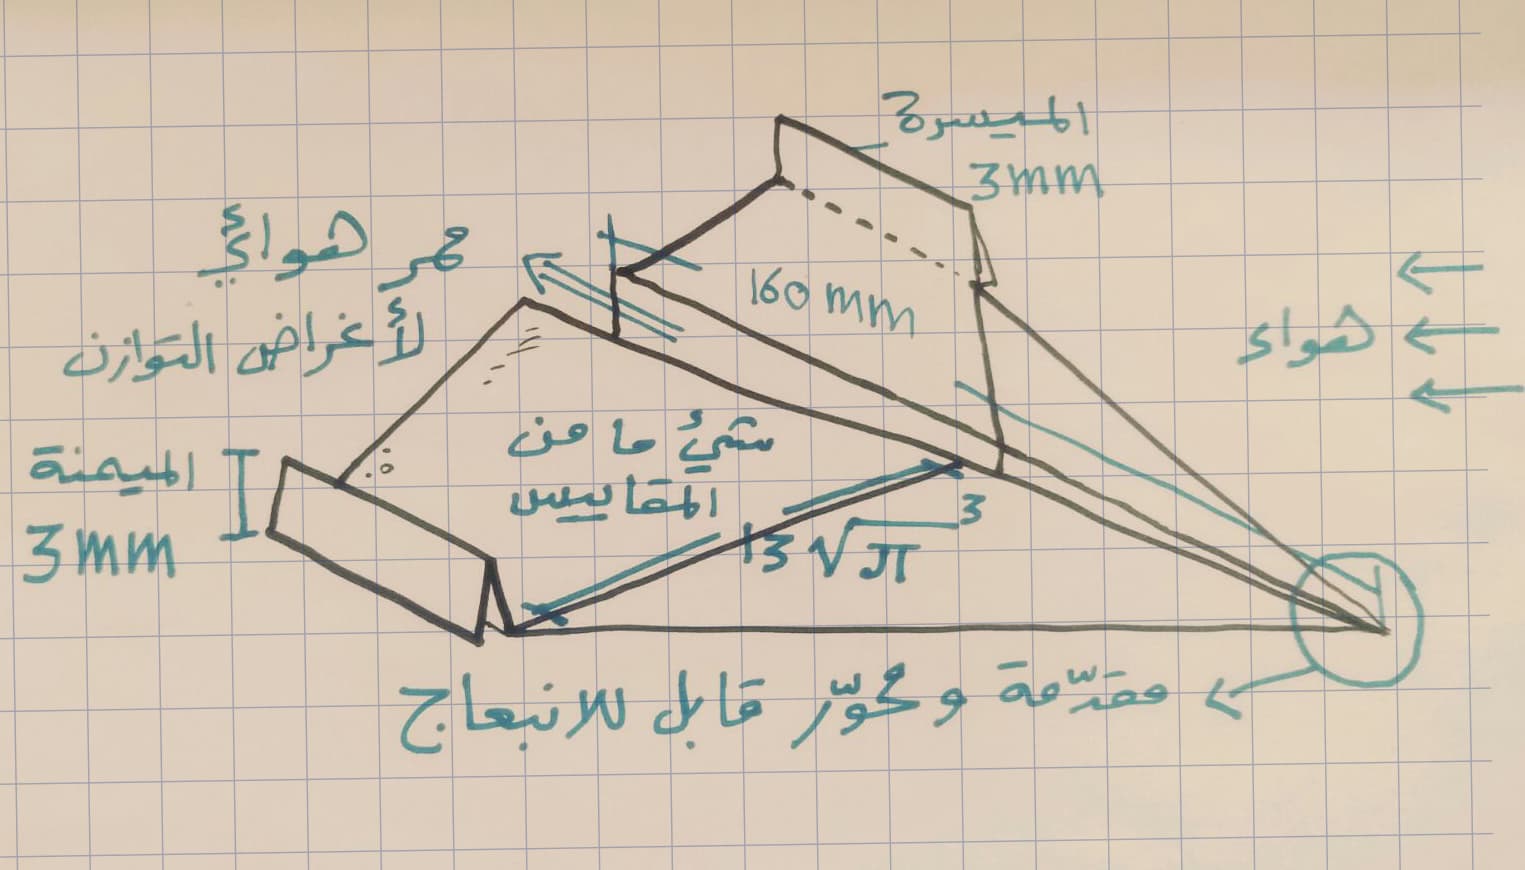 الميسرة
3mm
ممر هوائي
لأغراض التوازن
160 mm
هواء
الميمنة
3mm
شيئ ما من
المقاييس
13√π³
مقدّمة ومحوّر قابل للانبعاج